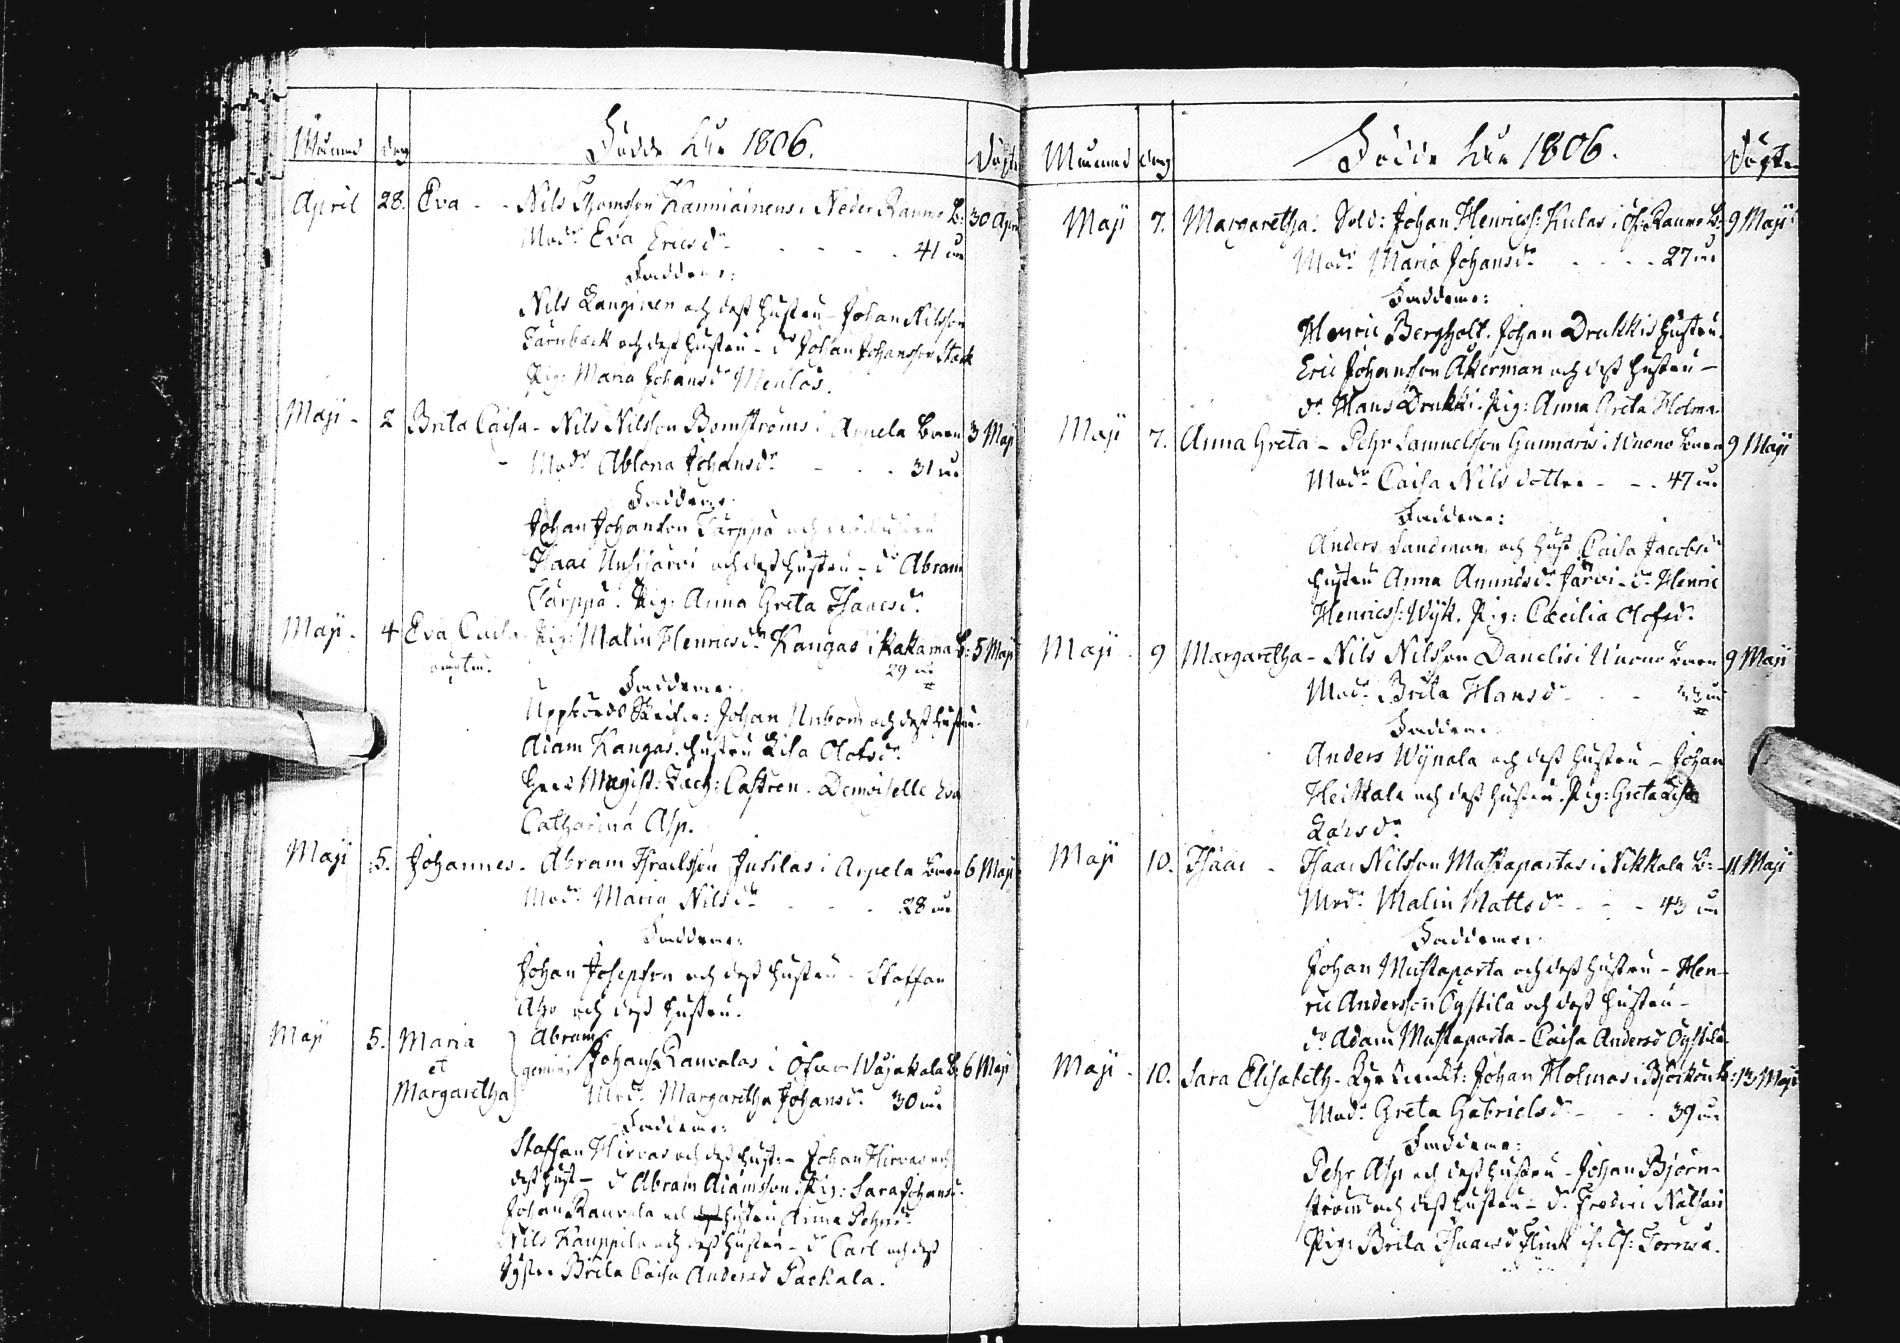 Månad dag Födde åhr 1806. Döpte
April 28. Eva - - Nils Thomsson Kanniainens i Neder Raumo B: 30 Apr
Modr Eva Ericsdr - - - - 41 år
Faddrar:
Nils Langinen och dess hustru - Johan Nilsson
Tarnback och dess hustru - dr Johan Johansson Stack
Pig: Maria Johansdr Menlös.
Maji - 2 Brita Caisa - Nils Nilsson Bomströms i Arpela barn 3 Maji
- Modr Ablona Johansdr - - - 31 år
Faddrar:
Johan Johansson Tarppa och
Isaac Uusijärvi och dess hustru - dr Abram
Tarppa. Pig: Anna Greta Isacsdr.
Maji - 4 Eva Caisa - Pig: Malin Henricsdr Kangas i Kakama b: 5 Maji
oäckta. 29 år
Faddrar:
Uppbörds Skrifv: Johan Unbom och dess hustru.
Adam Kangas. hustru Lisa Olofsdr.
Herr Magist: Zach: Castren. Demoiselle Eva
Catharina Asp.
Maji 5. Johannes - Abram Israelsson Jusilas i Arpela barn 6 Maji
Modr Maria Nilsdr - - - 28 år
Faddrar:
Johan Josepsson och dess hustru - Staffan
Aho och dess hustru.
Maji 5. Maria et Margaretha gemini Abram
Johanss. Rauvalas i Öfver Wojakala B: 6 Maji
Modr Margaretha Johansdr 30 år
Faddrar:
Staffan Hirvas och dess hust: - Johan Hirvas och
dess hust - dr Abram Adamsson. Pig: Sara Johansdr.
Johan Rauvala och hustru Anna Pehrsdr
Nils Kauppila och dess hustru - dr Carl och dess
Syster Brita Caisa Andersd Packala.
Månad dag Födde åhr 1806. Döpte
Maji 7. Margaretha. Sold: Johan Henricss: Kulas i Öf: Raumo B: 9 Maji
Modr Maria Johansdr - - - - 27 år
Faddrar:
Henric Bergholt. Johan Drukkis hustru.
Eric Johansson Åkerman och dess hustru -
dr Hans Drukki. Pig: Anna Greta Holma.
Maji 7. Anna Greta - Pehr Samuelsson Gunnaris i Wuono barn 9 Maji
Modr Caisa Nilsdotter - - - 47 år
Faddrar:
Anders Sandman och hust Caisa Jacobsdr
hustru Anna Anundsdr Järvi - dr Henric
Henricss: Wyk. Pig: Cæcilia Olofsdr.
Maji - 9 Margaretha - Nils Nilsson Danelis i Wuono barn 9 Maji
Modr Brita Hansdr - - - 33 år
Faddrar:
Anders Wynola och dess hustru - Johan
Heikkala och dess hustru. Pig: Greta Lisa
Larsdr
Maji 10. Isaac - Isaac Nilsson Mustapartas i Nikkala B: - 11 Maji
Modr Malin Mattsdr - - - 43 år
Faddrar:
Johan Mustaparta och dess hustru - Hen-
ric Andersson Ojstila och dess hustru -
dr Adam Mustaparta - Caisa Andersd Ojstila
Maji - 10. Sara Elisabeth - Johan Holmas i Björkön B: 13 Maji
Modr Greta Gabrielsdr - - - 39 år
Faddrar:
Pehr Asp och dess hustru - Johan Björn-
ström och dess hustru - dr Fredric
Pig: Brita Isaacsd Flink